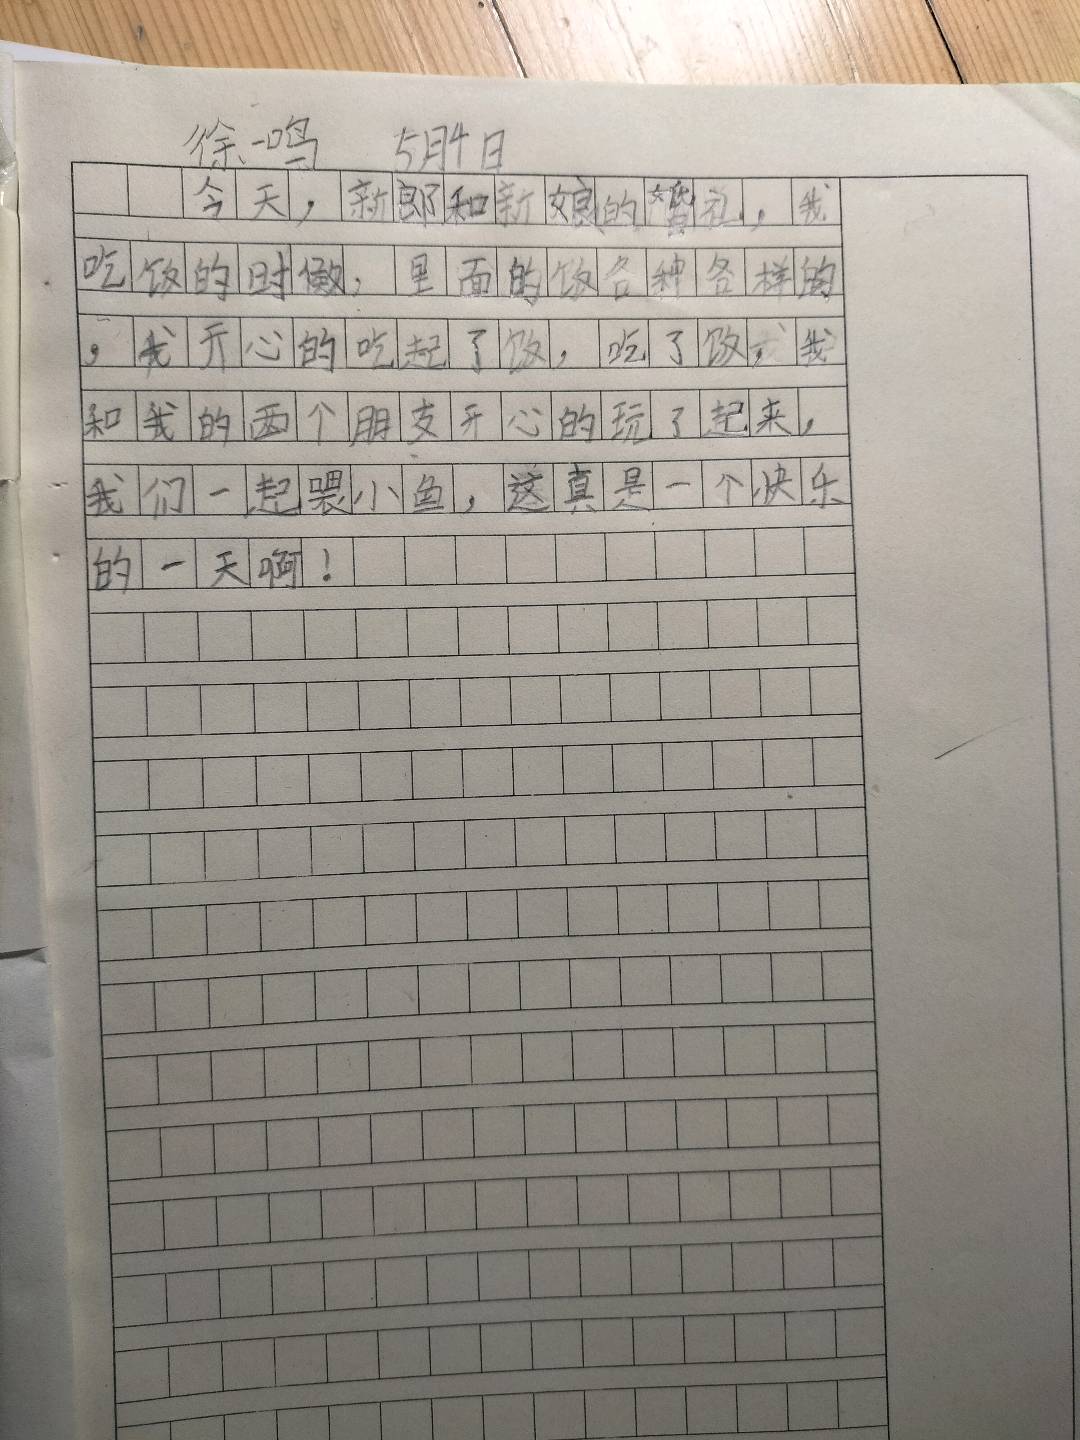 徐一鸣 5月4日
今天，新郎和新娘的婚礼，我
吃饭的时候，里面的饭各种各样的
，我开心的吃起了饭，吃了饭，我
和我的两个朋友开心的玩了起来，
我们一起喂小鱼，这真是一个快乐
的一天啊！